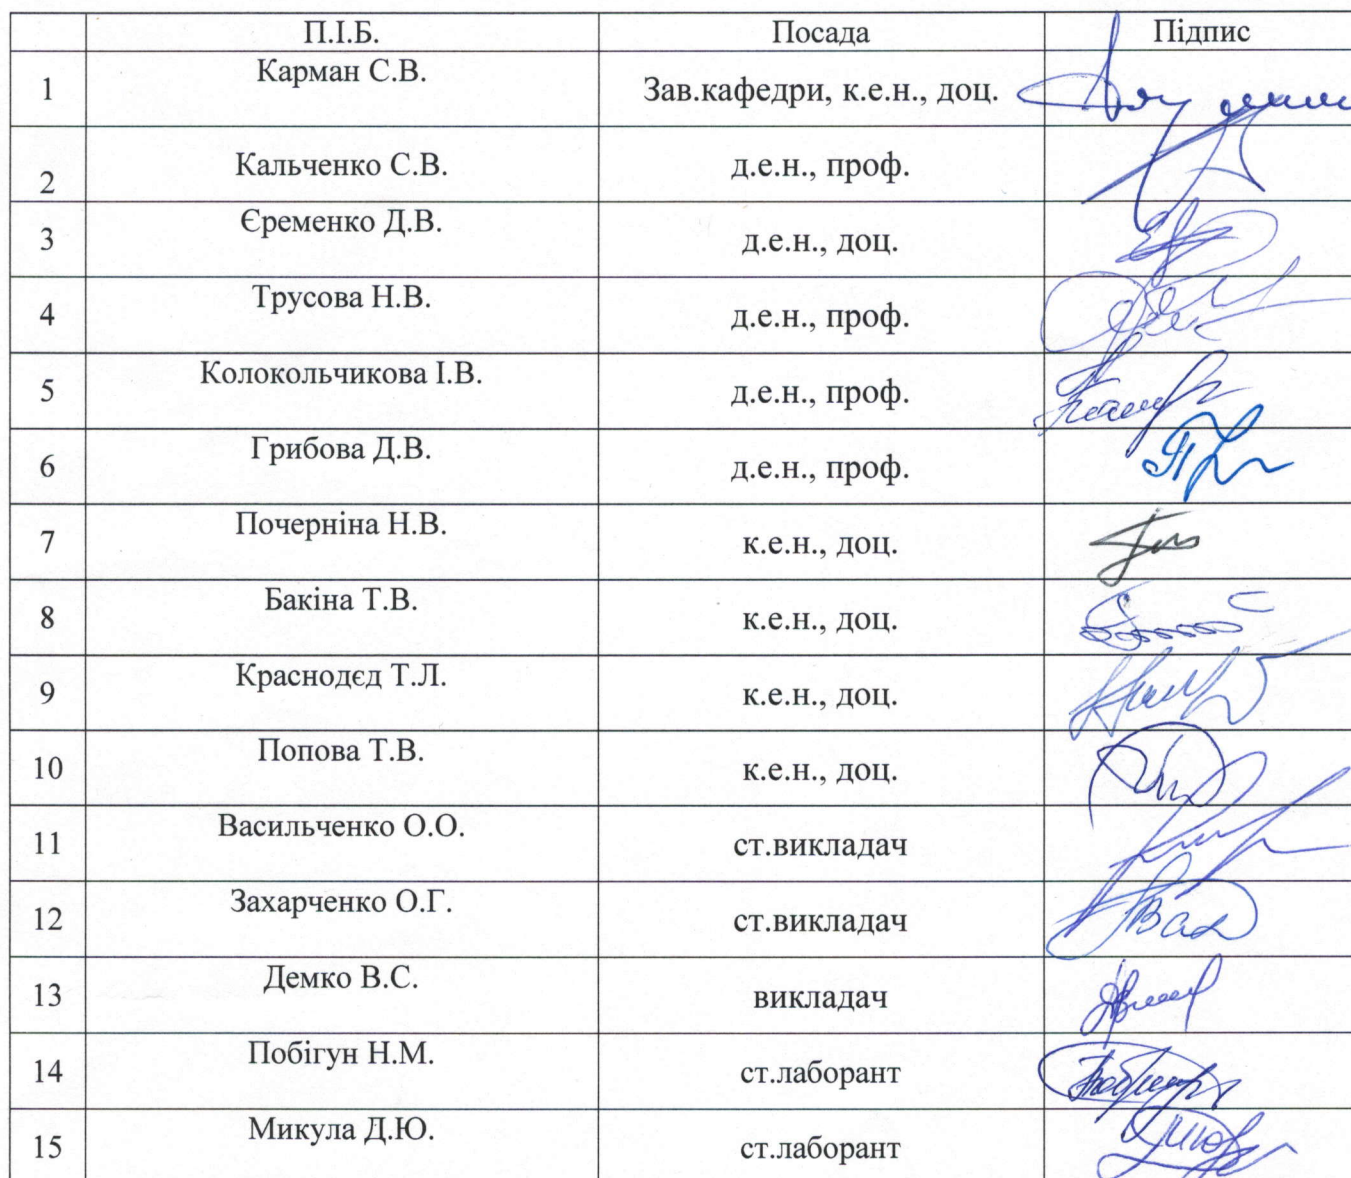 П.І.Б. Посада Підпис
1 Карман С.В. Зав.кафедри, к.е.н., доц.
2 Кальченко С.В. д.е.н., проф.
3 Єременко Д.В. д.е.н., доц.
4 Трусова Н.В. д.е.н., проф.
5 Колокольчикова І.В. д.е.н., проф.
6 Грибова Д.В. д.е.н., проф.
7 Почерніна Н.В. к.е.н., доц.
8 Бакіна Т.В. к.е.н., доц.
9 Краснодєд Т.Л. к.е.н., доц.
10 Попова Т.В. к.е.н., доц.
11 Васильченко О.О. ст.викладач
12 Захарченко О.Г. ст.викладач
13 Демко В.С. викладач
14 Побігун Н.М. ст.лаборант
15 Микула Д.Ю. ст.лаборант